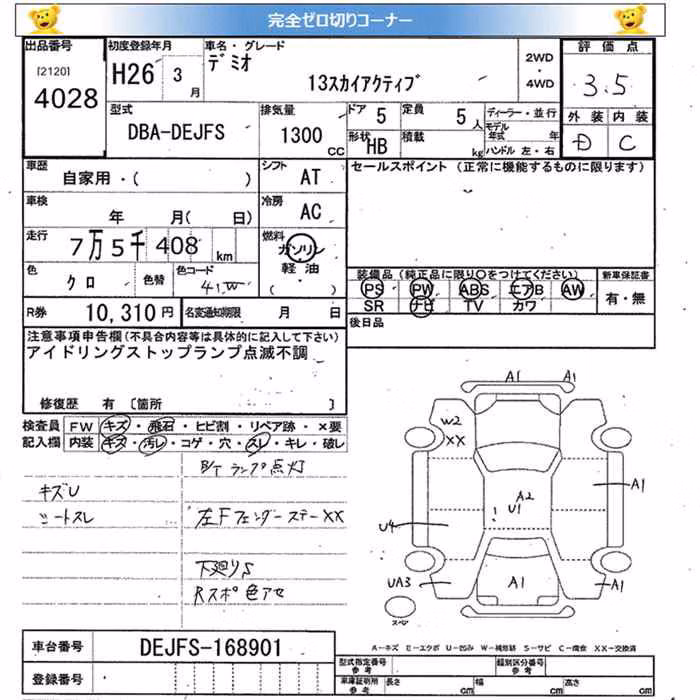 完全ゼロ切りコーナー
出品番号 初度登録年月 車名・グレード 評価点
[2120] 4028
H26 3月
デミオ
13スカイアクティブ
2WD・4WD
3.5
型式 DBA-DEJFS
排気量 1300CC
ドア 5 定員 5人
形状 HB 積載 kg
ディーラー・並行
モデル年式 年
ハンドル 左・右
外装 内装
D C
車歴 自家用・( )
シフト AT
セールスポイント (正常に機能するものに限ります)
車検 年 月( 日)
冷房 AC
走行 7万5千408km
燃料 ガソリン 軽油・( )
色 クロ 色替 色コード 41W
装備品 (純正品に限り○をつけてください) 新車保証書
PS PW ABS エアB AW
SR ナビ TV カワ
有・無
R券 10,310円 名変通知期限 月 日
後日品
注意事項申告欄(不具合内容等は具体的に記入して下さい)
アイドリングストップランプ点滅不調
修復歴 有 〔箇所 〕
検査員記入欄
FW キズ・飛石・ヒビ割・リペア跡・×要
内装 キズ・汚レ・コゲ・穴・スレ・キレ・破レ
B/T ランプ点灯
キズU
シートスレ
左Fフェンダーステー××
下廻りS
Rスポ色アセ
A1 A1
W2
XX
A1
A2
U1
U4
UA3 A1 A1
スペア
A-キズ E-エクボ U-凹み W-補修跡 S-サビ C-腐食 XX-交換済
車台番号 DEJFS-168901
登録番号
型式指定番号 参考 類別区分番号 参考
車庫証明所 参考 長さ cm 幅 cm 高さ cm